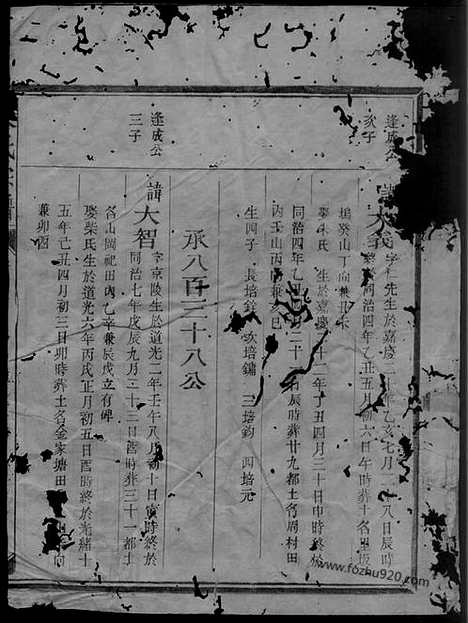 逢成公
次子
諱大義字仁先生於嘉慶二十年乙亥七月二八日辰時
同治四年乙丑五月初六日午時葬土名里坂
塢癸山丁向兼丑未
娶朱氏生於嘉慶二十二年丁丑四月三十日申時終於
同治四年乙丑四月二十日辰時葬廿九都土名周村田
內壬山丙向兼亥巳
生四子 長培 次培鏞 三培鈞 四培元
承八百三十八公
逢成公
三子
諱大智字京陵生於道光二年壬午八月初十日寅時終於
同治七年戊辰九月二十三日酉時葬三十一都土
名山岡祀田內乙辛兼辰戌立有碑
娶柴氏生於道光六年丙戌正月初五日酉時終於光緒十
五年己丑四月初三日卯時葬土名金家塘田向
兼卯酉
www.fozhu920.com